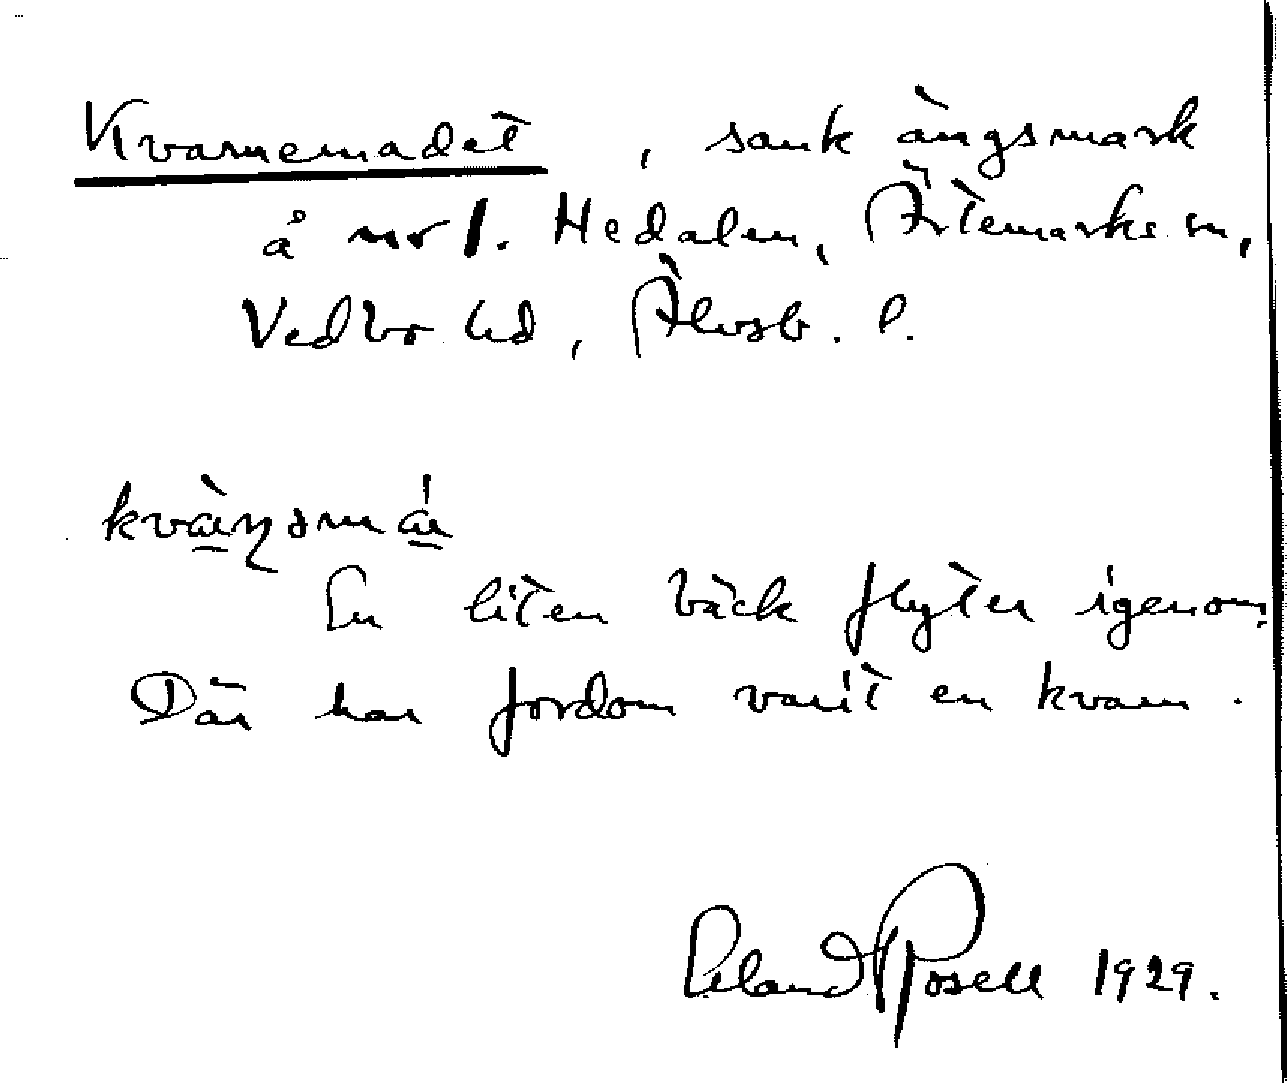 Kvarnemadet, sank ängsmark
å nr 1. Hedalen, Ärtemarks sn,
Vedbo hd, Älvsb. l.
En liten bäck flyter igenom.
Där har fordom varit en kvarn.
Erland Rosell 1929.